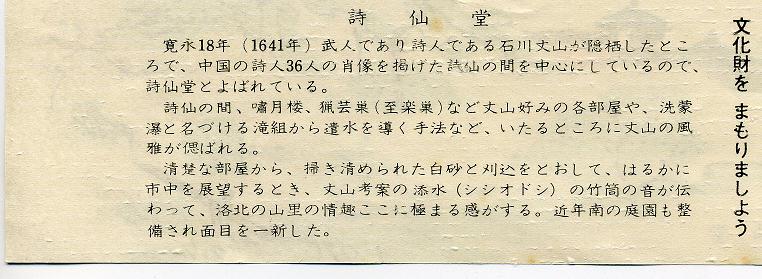 詩仙堂
寛永18年（1641年）武人であり詩人である石川丈山が隠栖したとこ
ろで、中国の詩人36人の肖像を掲げた詩仙の間を中心にしているので、
詩仙堂とよばれている。
詩仙の間、嘯月楼、猟芸巣（至楽巣）など丈山好みの各部屋や、洗蒙
瀑と名づける滝組から遣水を導く手法など、いたるところに丈山の風
雅が偲ばれる。
清楚な部屋から、掃き清められた白砂と刈込をとおして、はるかに
市中を展望するとき、丈山考案の添水（シシオドシ）の竹筒の音が伝
わって、洛北の山里の情趣ここに極まる感がする。近年南の庭園も整
備され面目を一新した。
文化財を まもりましよう